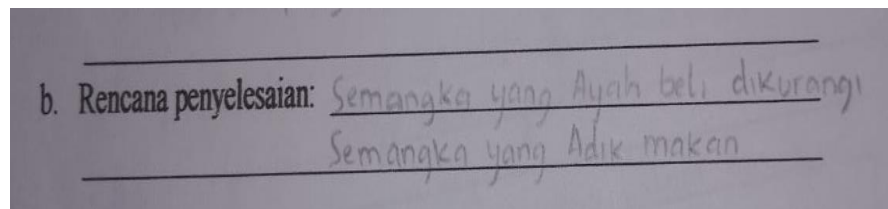 b. Rencana penyelesaian: Semangka yang Ayah beli dikurangi
Semangka yang Adik makan